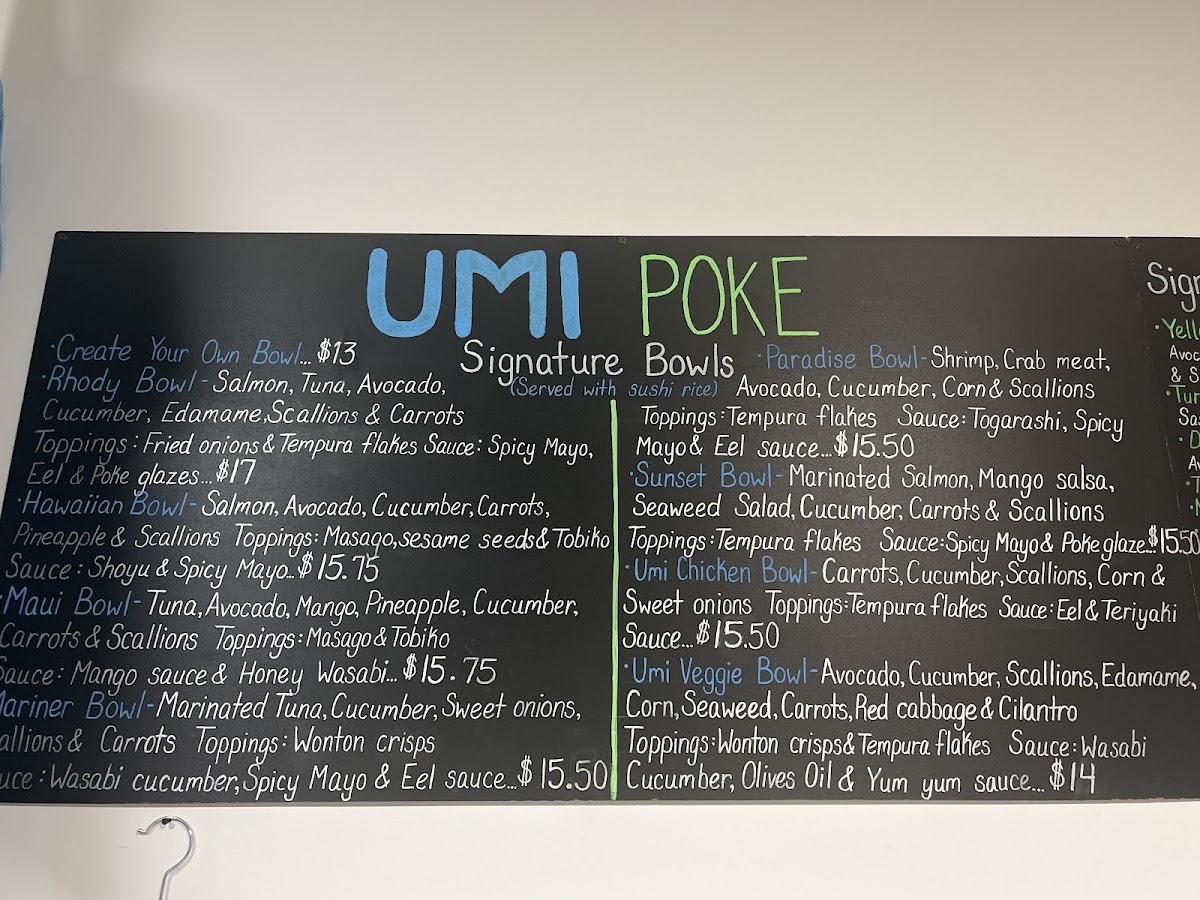 UMI POKE
Signature Bowls
(Served with sushi rice)
·Create Your Own Bowl... $13
·Rhody Bowl - Salmon, Tuna, Avocado,
Cucumber, Edamame, Scallions & Carrots
Toppings: Fried onions & Tempura flakes Sauce: Spicy Mayo,
Eel & Poke glazes... $17
·Hawaiian Bowl - Salmon, Avocado, Cucumber, Carrots,
Pineapple & Scallions Toppings: Masago, sesame seeds & Tobiko
Sauce: Shoyu & Spicy Mayo... $15.75
·Maui Bowl - Tuna, Avocado, Mango, Pineapple, Cucumber,
Carrots & Scallions Toppings: Masago & Tobiko
Sauce: Mango sauce & Honey Wasabi... $15.75
Mariner Bowl - Marinated Tuna, Cucumber, Sweet onions,
allions & Carrots Toppings: Wonton crisps
uce: Wasabi cucumber, Spicy Mayo & Eel sauce... $15.50
·Paradise Bowl - Shrimp, Crab meat,
Avocado, Cucumber, Corn & Scallions
Toppings: Tempura flakes Sauce: Togarashi, Spicy
Mayo & Eel sauce... $15.50
·Sunset Bowl - Marinated Salmon, Mango salsa,
Seaweed Salad, Cucumber, Carrots & Scallions
Toppings: Tempura flakes Sauce: Spicy Mayo & Poke glaze... $15.50
·Umi Chicken Bowl - Carrots, Cucumber, Scallions, Corn &
Sweet onions Toppings: Tempura flakes Sauce: Eel & Teriyaki
Sauce... $15.50
·Umi Veggie Bowl - Avocado, Cucumber, Scallions, Edamame,
Corn, Seaweed, Carrots, Red cabbage & Cilantro
Toppings: Wonton crisps & Tempura flakes Sauce: Wasabi
Cucumber, Olives Oil & Yum yum sauce... $14
Sign
·Yell
Avoc
& S
·Tun
Sa